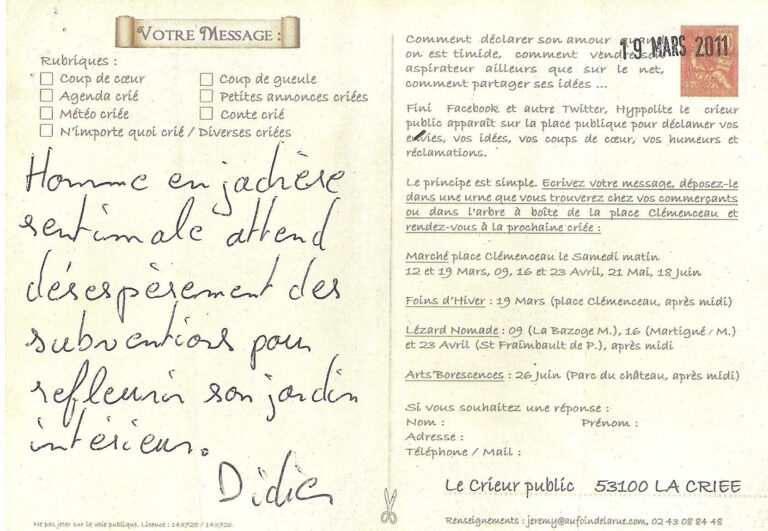 VOTRE MESSAGE :
Rubriques :
Coup de cœur
Coup de gueule
Agenda crié
Petites annonces criées
Météo criée
Conte crié
N'importe quoi crié / Diverses criées
Homme en jachère
sentimale attend
désespèrement des
subventions pour
refleurir son jardin
intérieur.
Didier
Ne pas jeter sur la voie publique. Lisence : 143725 / 143726
Comment déclarer son amour quand
on est timide, comment vendre son
aspirateur ailleurs que sur le net,
comment partager ses idées ...
19 MARS 2011
Fini Facebook et autre Twitter, Hyppolite le crieur
public apparaît sur la place publique pour déclamer vos
envies, vos idées, vos coups de cœur, vos humeurs et
réclamations.
Le principe est simple. Ecrivez votre message, déposez-le
dans une urne que vous trouverez chez vos commerçants
ou dans l'arbre à boîte de la place Clémenceau et
rendez-vous à la prochaine criée :
Marché place Clémenceau le Samedi matin
12 et 19 Mars, 09, 16 et 23 Avril, 21 Mai, 18 Juin
Foins d'Hiver : 19 Mars (place Clémenceau, après midi)
Lézard Nomade : 09 (La Bazoge M.), 16 (Martigné / M.)
et 23 Avril (St Fraimbault de P.), après midi
Arts Borescences : 26 Juin (Parc du château, après midi)
Si vous souhaitez une réponse :
Nom : Prénom :
Adresse :
Téléphone / Mail :
Le Crieur public 53100 LA CRIEE
Renseignements : jeremy@aufoindelarue.com, 02 43 08 84 48